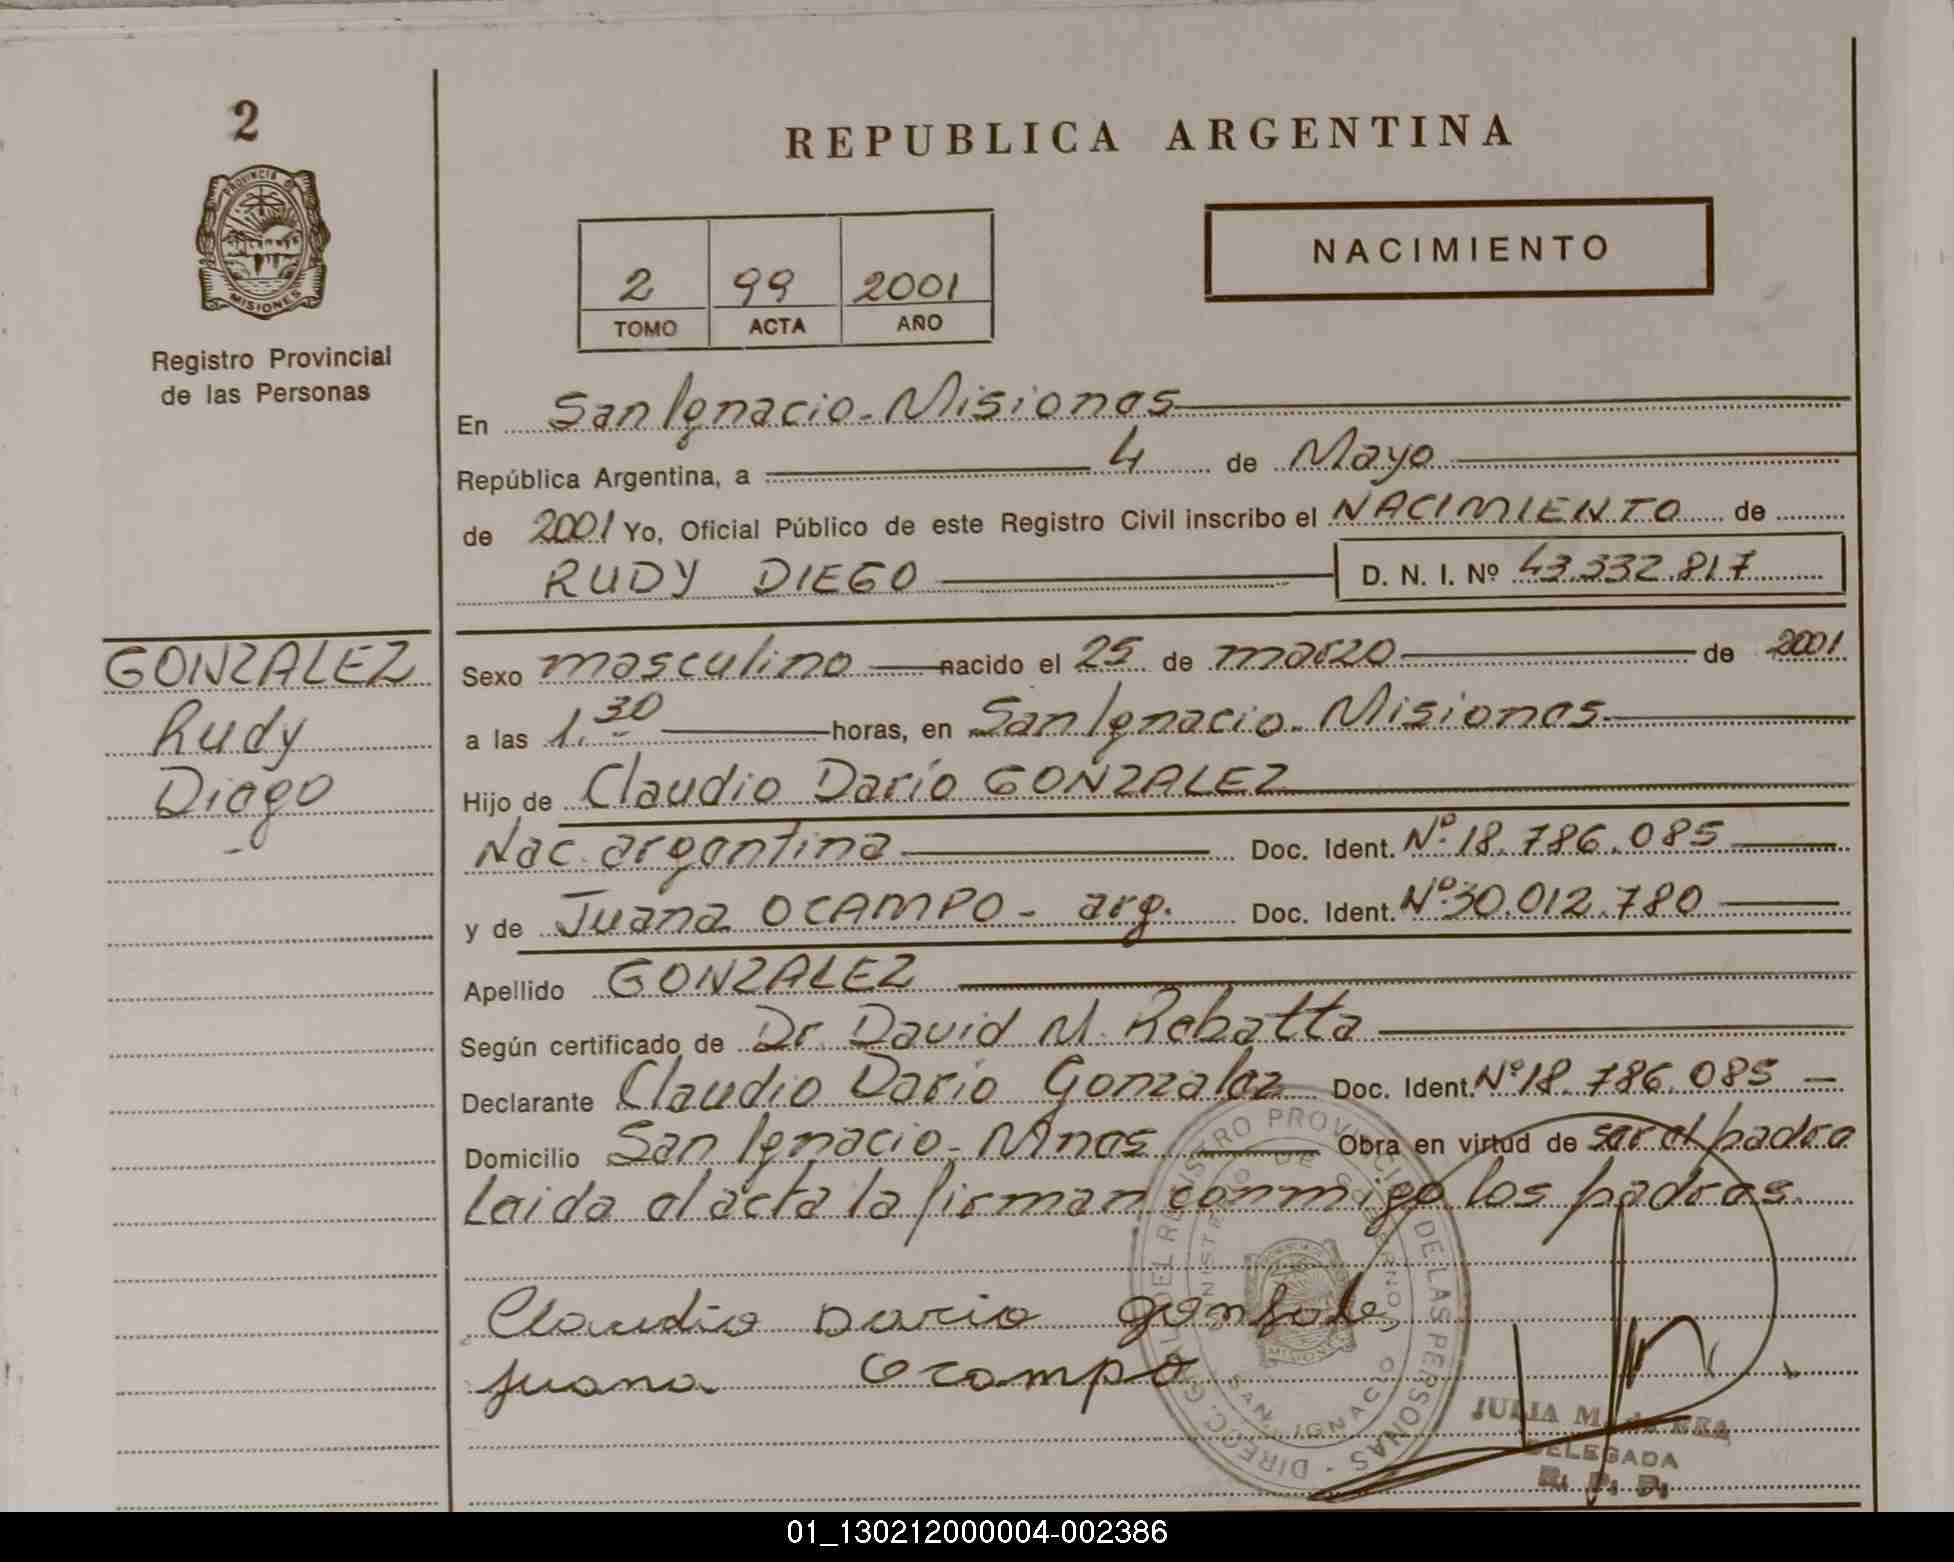 2
REPUBLICA ARGENTINA
PROVINCIA DE
MISIONES
Registro Provincial
de las Personas
2 99 2001
TOMO ACTA AÑO
NACIMIENTO
En San Ignacio - Misiones
República Argentina, a 4 de Mayo
de 2001 Yo, Oficial Público de este Registro Civil inscribo el NACIMIENTO de
RUDY DIEGO D. N. I. Nº 43.332.817
GONZALEZ
Rudy
Diego
Sexo masculino nacido el 25 de marzo de 2001
a las 1.30 horas, en San Ignacio - Misiones
Hijo de Claudio Darío GONZALEZ
Nac. argentina Doc. Ident. Nº 18.786.085
y de Juana OCAMPO - arg. Doc. Ident. Nº 30.012.780
Apellido GONZALEZ
Según certificado de Dr. David M. Rebatta
Declarante Claudio Darío Gonzalez Doc. Ident. Nº 18.786.085
Domicilio San Ignacio - Mnes Obra en virtud de ser el padre
Leida el acta la firman conmigo los padres.
Claudio Dario
Juana Ocampo
DIRECC. GRAL. DEL REGISTRO PROVINCIAL DE LAS PERSONAS
MINISTERIO DE GOBIERNO
MISIONES
SAN IGNACIO
JULIA M. de
DELEGADA
R. P. P.
01_130212000004-002386